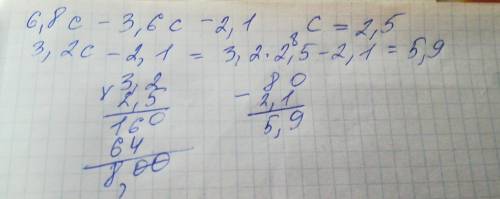 6,8с - 3,6с - 2,1 с = 2,5
3,2с - 2,1 = 3,2 · 2,5 - 2,1 = 5,9
8
× 3,2
2,5
160
64
8,00
- 80
2,1
5,9